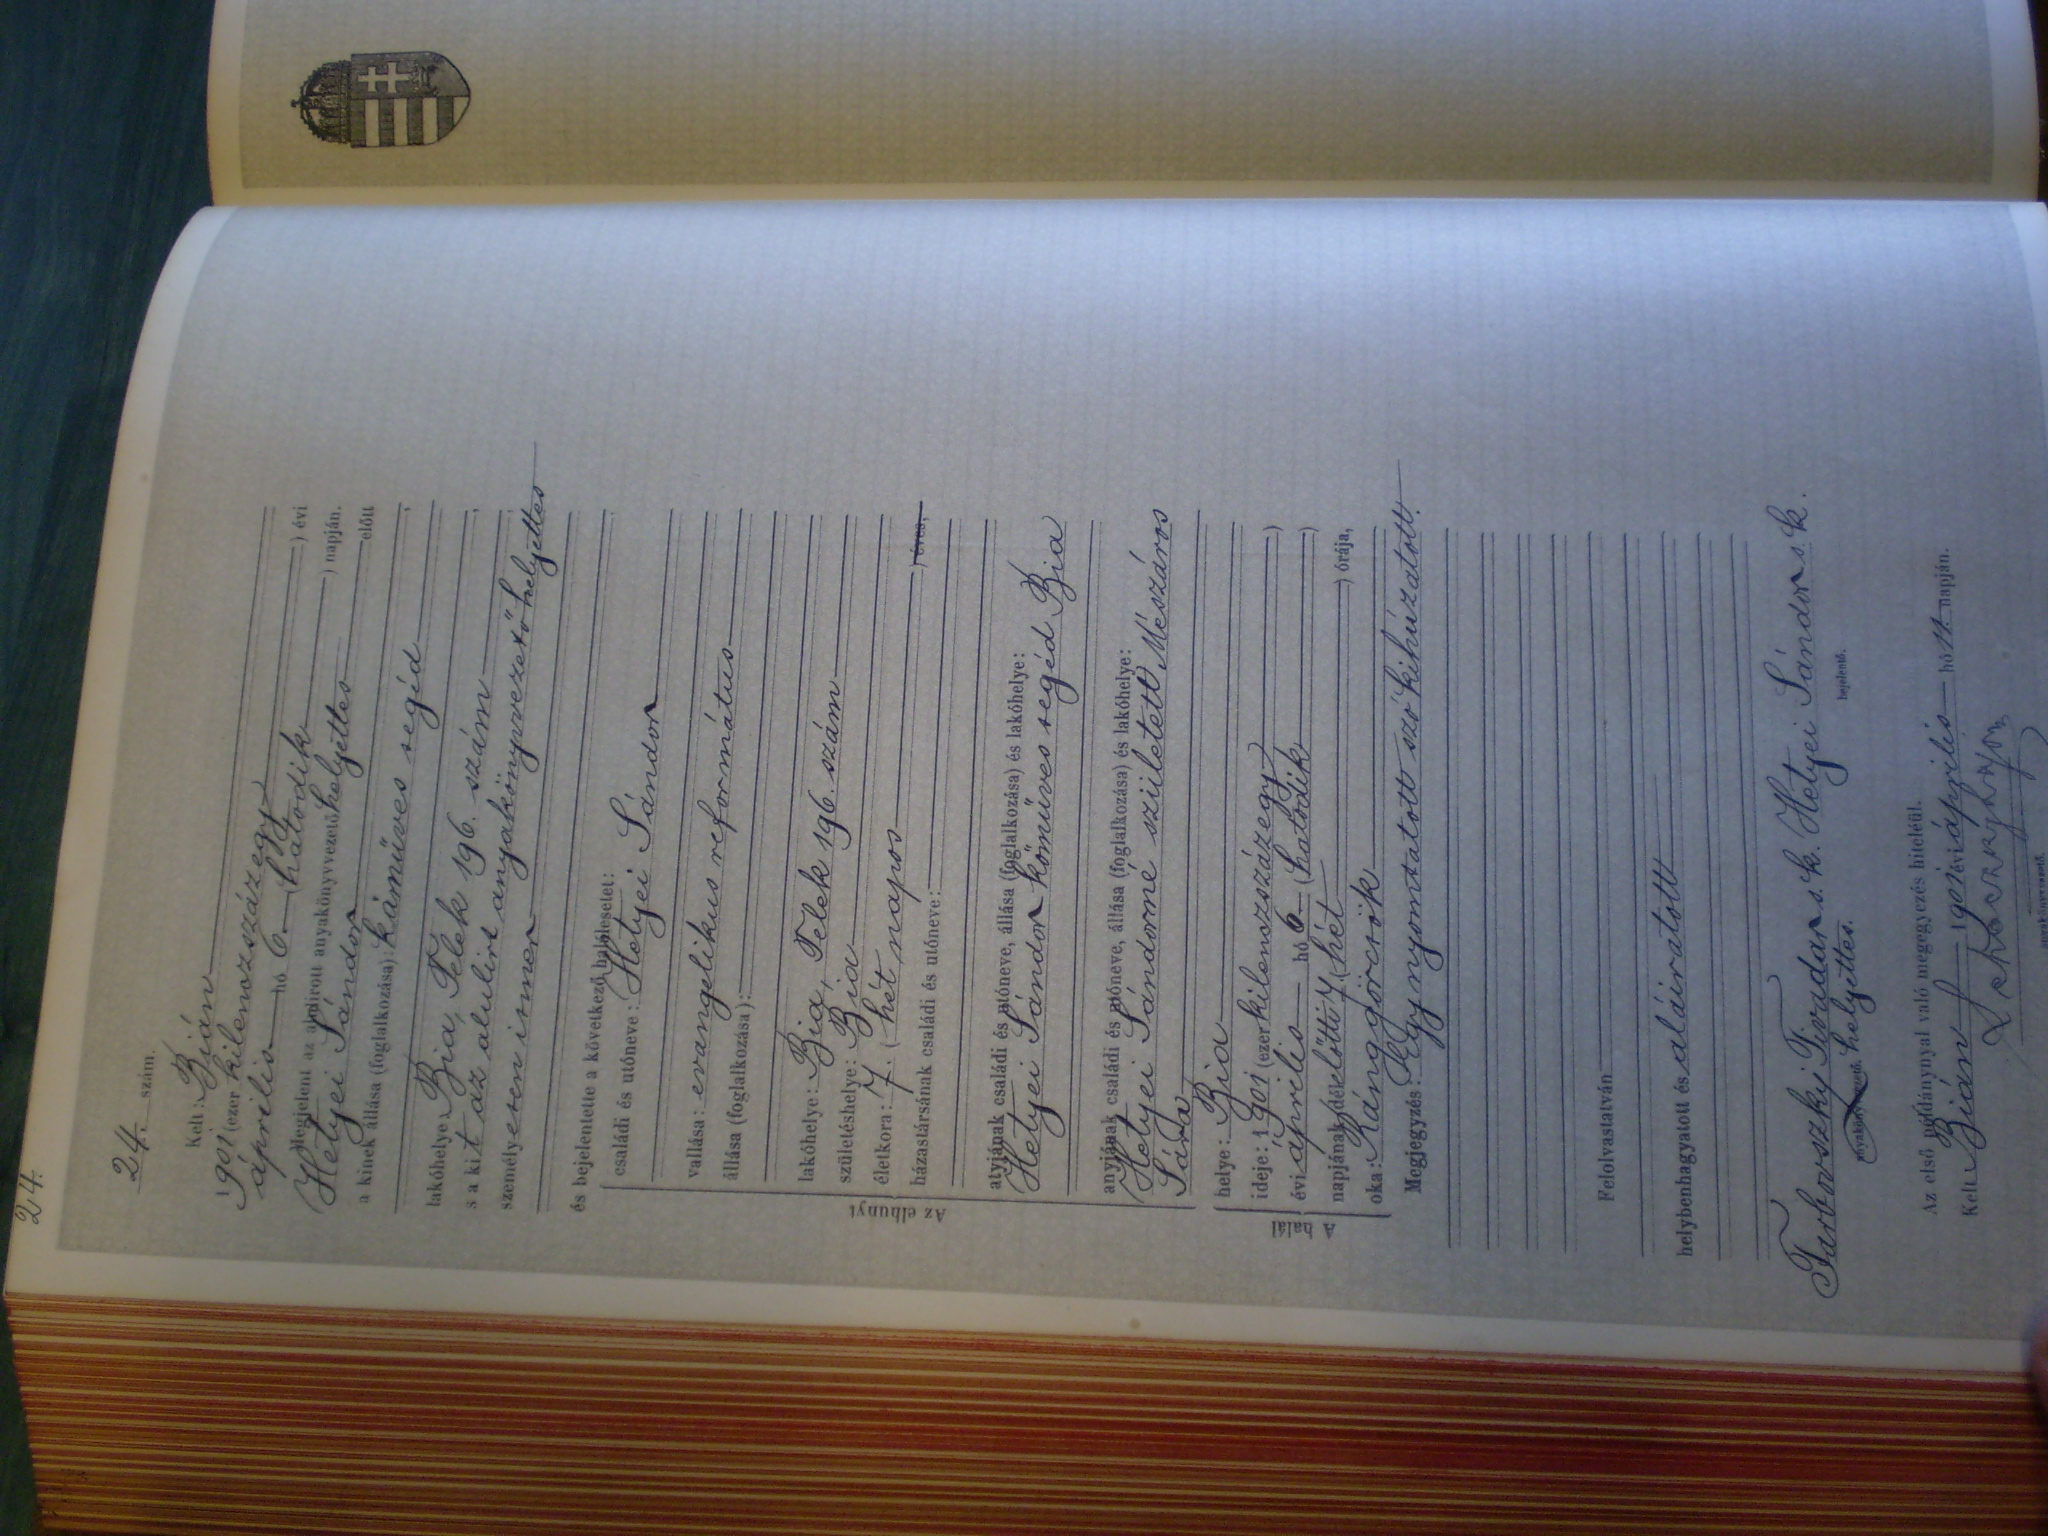 24.
24. szám.
Kelt: Bián
1901 (ezer kilenczszázegy) évi
április hó 6. (hatodik) napján.
Megjelent az alulirott anyakönyvvezető helyettes előtt
Hetyei Sándor
a kinek állása (foglalkozása): kőműves segéd
lakóhelye: Bia, Telek 196. szám
s a kit az alulirt anyakönyvvezető helyettes
személyesen ismer
és bejelentette a következő halálesetet:
Az elhunyt
családi és utóneve: Hetyei Sándor
vallása: evangelikus református
állása (foglalkozása):
lakóhelye: Bia, Telek 196. szám
születéshelye: Bia
életkora: 7. (hét napos ) éves,
házastársának családi és utóneve:
atyjának családi és utóneve, állása (foglalkozása) és lakóhelye:
Hetyei Sándor kőműves segéd Bia
anyjának családi és utóneve, állása (foglalkozása) és lakóhelye:
Hetyei Sándorné született Mészáros
Sára
A halál
helye: Bia
ideje: 1901 (ezer kilenczszázegy )
évi április hó 6 (hatodik )
napjának délelőtti 7 (hét ) órája,
oka: Ránggörcsök
Megjegyzés: Egy nyomtatott szó kihúzatott.
Felolvastatván
helybenhagyatott és aláíratott
Tarbovszky Tivadar s. k. Hetyei Sándor s. k.
anyakönyvvezető helyettes.
bejelentő.
Az első példánynyal való megegyezés hiteléül.
Kelt Bián 1901 évi április hó 11. napján.
anyakönyvvezető.